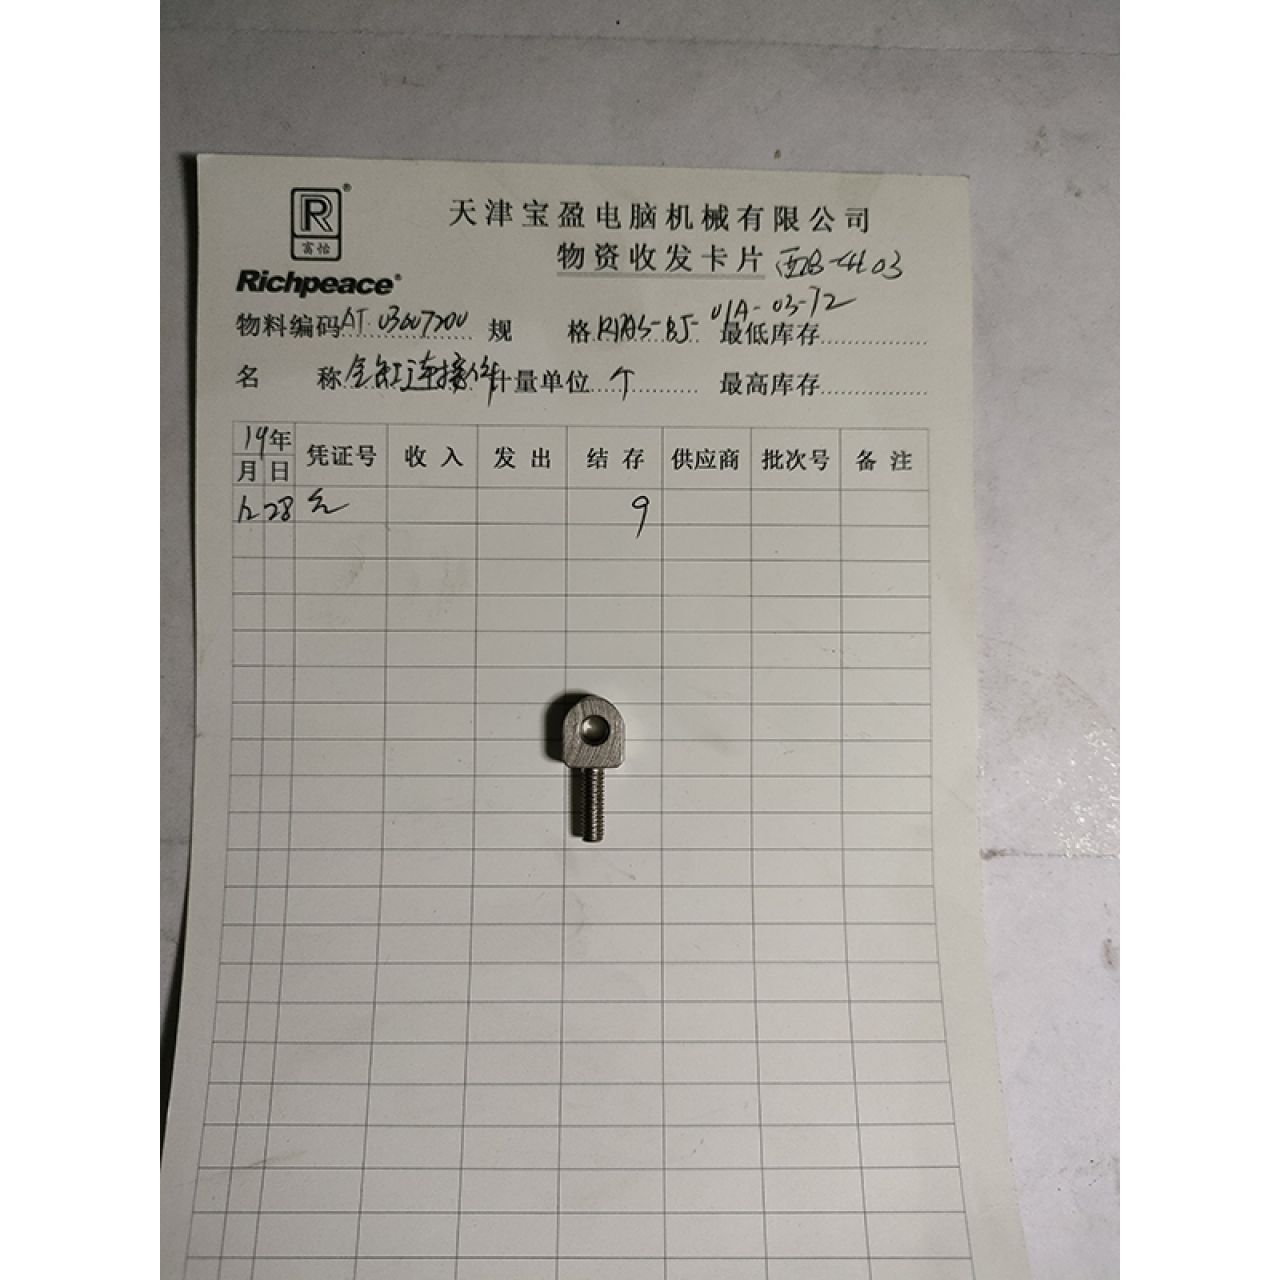 R®
富怡
Richpeace®
天津宝盈电脑机械有限公司
物资收发卡片 西B-4403
物料编码AT.03007200 规 格RPAS-BJ-01A-03-72 最低库存
名 称 气缸连接件 计量单位 个 最高库存
19年
月 日 凭证号 收入 发出 结存 供应商 批次号 备注
12 28 9